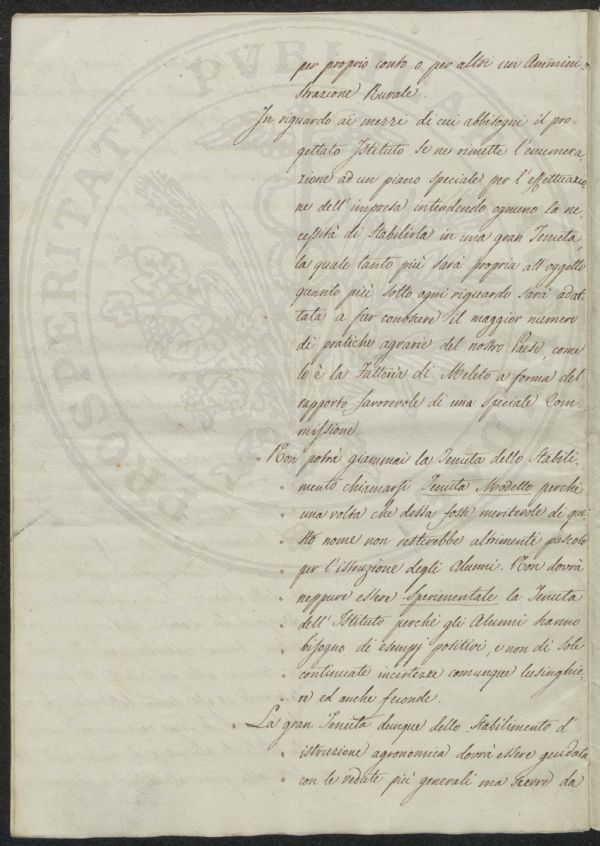 per proprio conto o per altri un' Ammini-
strazione Rurale.
In riguardo ai mezzi di cui abbisogni il pro-
gettato Istituto se ne rimette l'enumera-
zione ad un piano speciale per l'effettuazio-
ne dell'impresa intendendo ognuno la ne
cessità di stabilirla in una gran Tenuta,
la quale tanto più sarà propria all'oggetto
quanto più sotto ogni riguardo sarà adat-
tata a far conoscere il maggior numero
di pratiche agrarie del nostro Paese, come
lo è la Fattoria di Meleto a forma del
rapporto favorevole di una speciale Com-
missione.
" Non potrà giammai la Tenuta dello Stabili-
" mento chiamarsi Tenuta Modello perchè
" una volta che dessa fosse meritevole di que-
" sto nome non resterebbe altrimenti pascolo
" per l'istruzione degli Alunni. Non dovrà
" neppure essere Sperimentale la Tenuta
" dell'Istituto perchè gli Alunni hanno
" bisogno di esempj positivi, e non di sole
" continuate incertezze comunque lusinghie-
" re ed anche feconde.
" La gran Tenuta dunque dello Stabilimento d'
" istruzione agronomica dovrà essere guidata
" con le vedute più generali ma scevre da
PROSPERITATI PVBLICAE